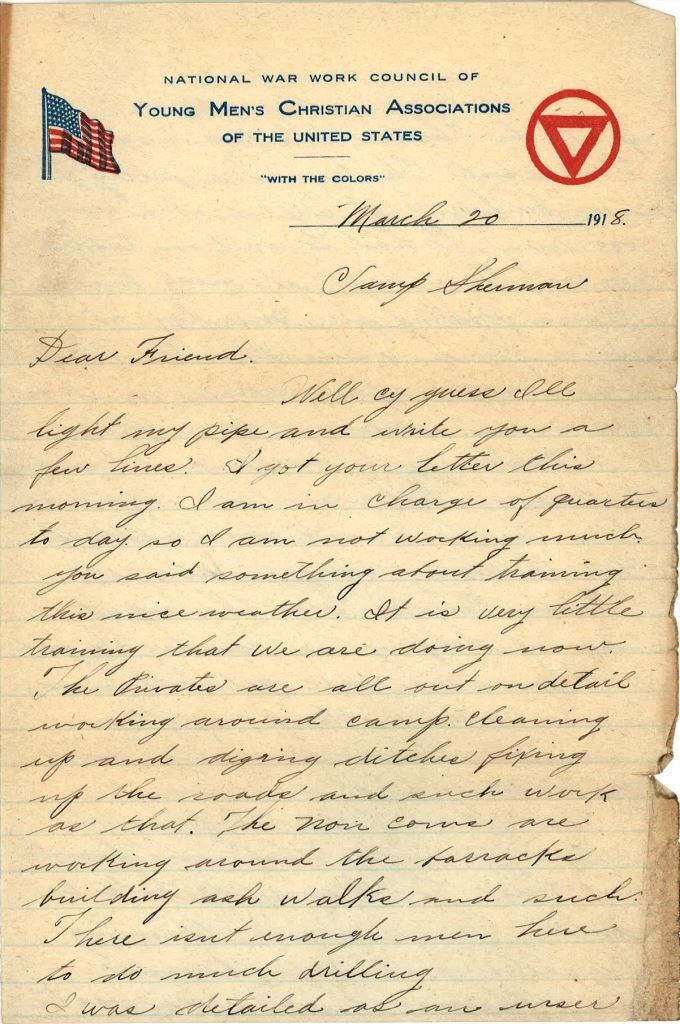 NATIONAL WAR WORK COUNCIL OF
YOUNG MEN'S CHRISTIAN ASSOCIATIONS
OF THE UNITED STATES
"WITH THE COLORS"
March 20 1918.
Camp Sherman
Dear Friend.
Well cy guess Ill
light my pipe and write you a
few lines. I got your letter this
morning. I am in charge of quarters
to day. so I am not working much.
you said something about training
this nice weather. It is very little
training that we are doing now.
The Privates are all out on detail
working around camp. cleaning
up and digring ditches fixing
up the roads and such work
as that. The non coms are
working around the barracks
building ash walks and such.
There isnt enough men here
to do much drilling
I was detailed as an urser